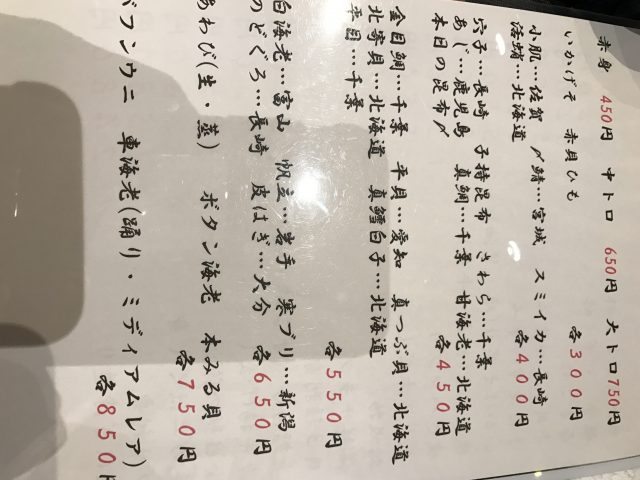 赤身 450円 中トロ 650円 大トロ 750円
いかげそ 赤貝ひも 各300円
小肌…佐賀 〆鯖…宮城 スミイカ…長崎
活蛸…北海道 各400円
穴子…長崎 子持昆布 さわら…千葉
あじ…鹿児島 真鯛…千葉 甘海老…北海道
本日の昆布〆 各450円
金目鯛…千葉 平貝…愛知 真つぶ貝…北海道
北寄貝…北海道 真鱈白子…北海道
平目…千葉 各550円
白海老…富山 帆立…岩手 寒ブリ…新潟
のどぐろ…長崎 皮はぎ…大分 各650円
あわび(生・蒸) ボタン海老 本みる貝 各750円
バフンウニ 車海老(踊り・ミディアムレア) 各850円